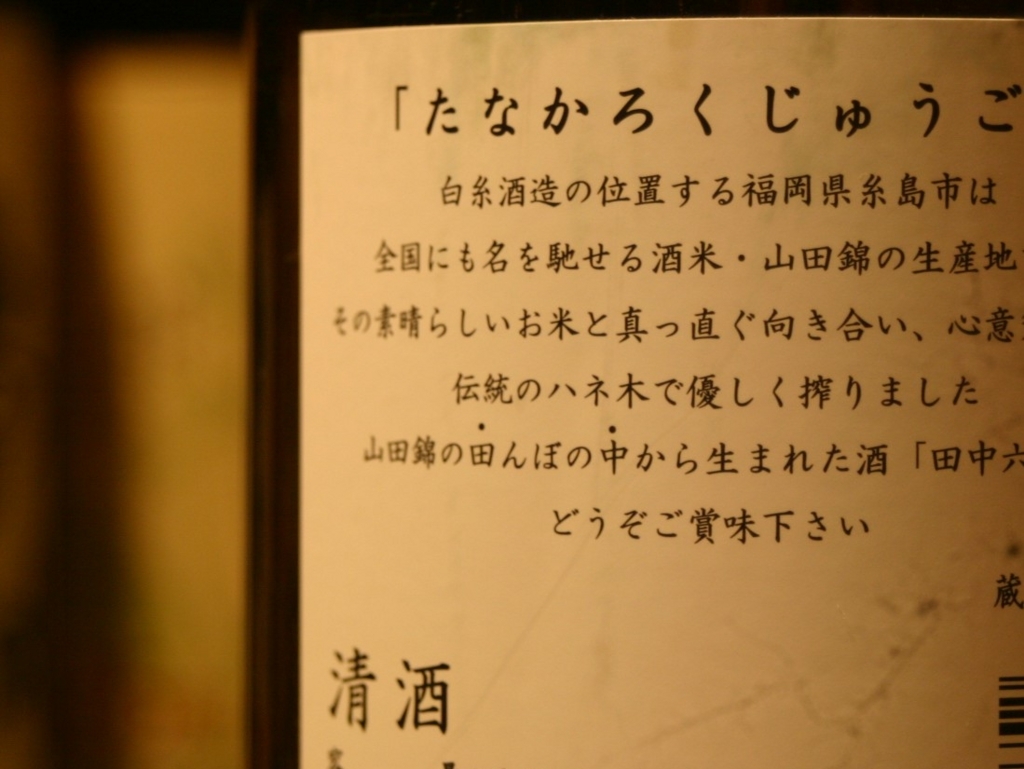 「たなかろくじゅうご
白糸酒造の位置する福岡県糸島市は
全国にも名を馳せる酒米・山田錦の生産地
その素晴らしいお米と真っ直ぐ向き合い、心意
伝統のハネ木で優しく搾りました
山田錦の田んぼの中から生まれた酒「田中六
どうぞご賞味下さい
蔵
清酒